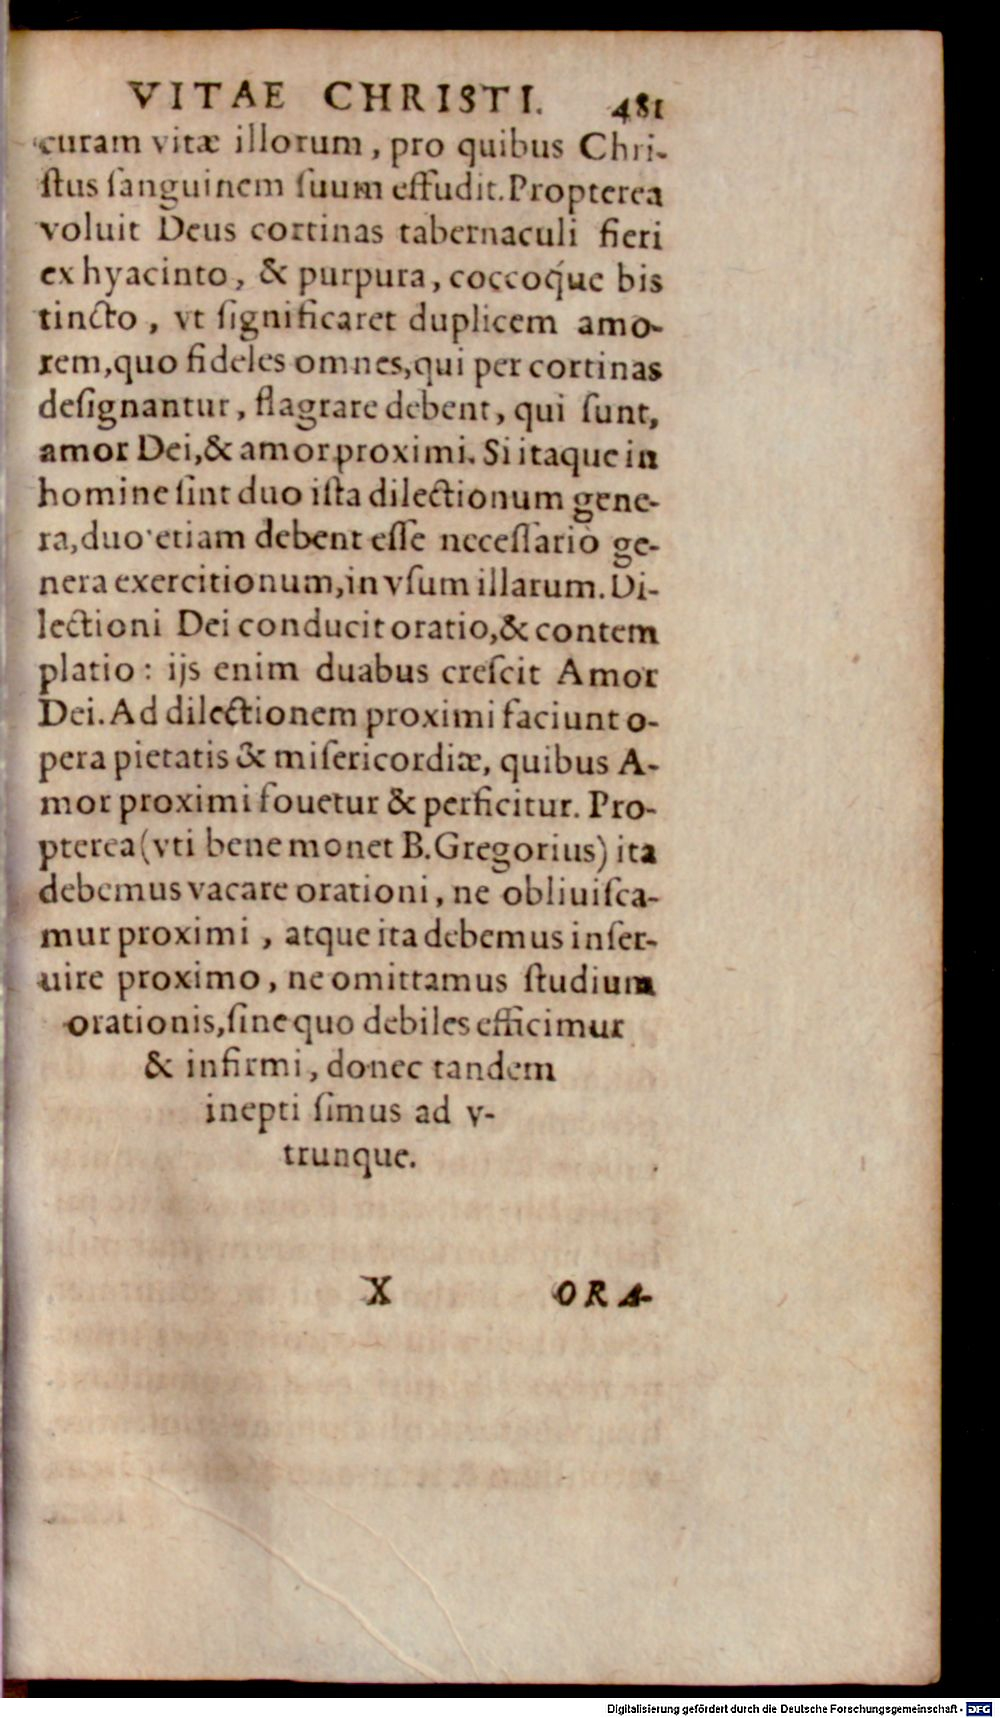 VITAE CHRISTI. 481
curam vitæ illorum, pro quibus Chri-
ſtus ſanguinem ſuum effudit. Propterea
voluit Deus cortinas tabernaculi fieri
ex hyacinto, & purpura, coccoq́ue bis
tincto, vt ſignificaret duplicem amo-
rem, quo fideles omnes, qui per cortinas
deſignantur, flagrare debent, qui ſunt,
amor Dei, & amor proximi. Si itaque in
homine ſint duo iſta dilectionum gene-
ra, duo etiam debent eſſe neceſſariò ge-
nera exercitionum, in vſum illarum. Di-
lectioni Dei conducit oratio, & contem
platio: ijs enim duabus creſcit Amor
Dei. Ad dilectionem proximi faciunt o-
pera pietatis & miſericordiæ, quibus A-
mor proximi fouetur & perficitur. Pro-
pterea (vti bene monet B. Gregorius) ita
debemus vacare orationi, ne obliuiſca-
mur proximi, atque ita debemus inſer-
uire proximo, ne omittamus ſtudium
orationis, ſine quo debiles efficimur
& infirmi, donec tandem
inepti ſimus ad v-
trunque.
X ORA-
Digitalisierung gefördert durch die Deutsche Forschungsgemeinschaft - DFG